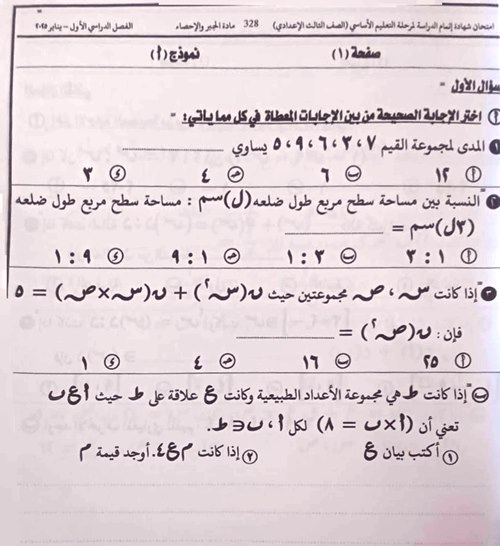 امتحان شهادة إتمام الدراسة لمرحلة التعليم الأساسي (الصف الثالث الإعدادي) 328 مادة الجبر والإحصاء الفصل الدراسي الأول – يناير ٢٠٢٥
صفحة (١) نموذج (أ)
سؤال الأول
أ) اختر الإجابة الصحيحة من بين الإجابات المعطاة في كل مما يأتي:
١ المدى لمجموعة القيم ٧ ، ٣ ، ٦ ، ٩ ، ٥ يساوي ________
أ) ١٢ ب) ٦ ج) ٤ د) ٣
٢ النسبة بين مساحة سطح مربع طول ضلعه (ل) سم : مساحة سطح مربع طول ضلعه
(٣ل) سم = ________
أ) ١ : ٣ ب) ٣ : ١ ج) ١ : ٩ د) ٩ : ١
٣ إذا كانت س ، ص مجموعتين حيث ن(س٢) + ن(س×ص) = ٥
فإن : ن(ص٢) = ________
أ) ٢٥ ب) ١٦ ج) ٤ د) ١
ب) إذا كانت ط هي مجموعة الأعداد الطبيعية وكانت ع علاقة على ط حيث أ ع ب
تعني أن (أ × ب = ٨) لكل أ ، ب ∈ ط
١ أكتب بيان ع ٢ إذا كانت م ع ٤، أوجد قيمة م